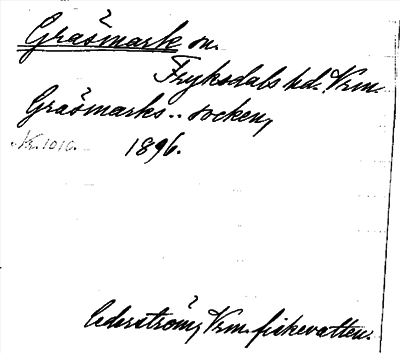 Gräsmark sn.
Fryksdals hd. Vrm.
Gräsmarks.. socken,
Nr. 1010. 1896.
Cederström, Vrm. fiskevatten.